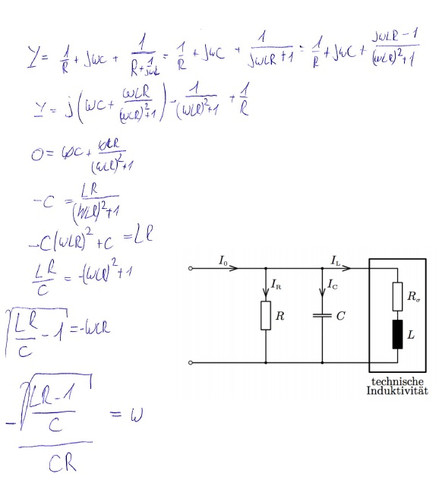 Y = 1/R + jωC + 1/(R + 1/jωL) = 1/R + jωC + 1/(jωLR+1) = 1/R + jωC + (jωLR-1)/((ωLR)²+1)
Y = j(ωC + ωLR/((ωLR)²+1)) - 1/((ωLR)²+1) + 1/R
0 = ωC + ωLR/((ωLR)²+1)
-C = LR/((ωLR)²+1)
-C(ωLR)² + C = LR
LR/C = -(ωLR)² + 1
√(LR/C - 1) = -ωLR
-√((LR-1)/C)/CR = ω
I₀
I_L
I_R
I_C
R
C
R_σ
L
technische
Induktivität